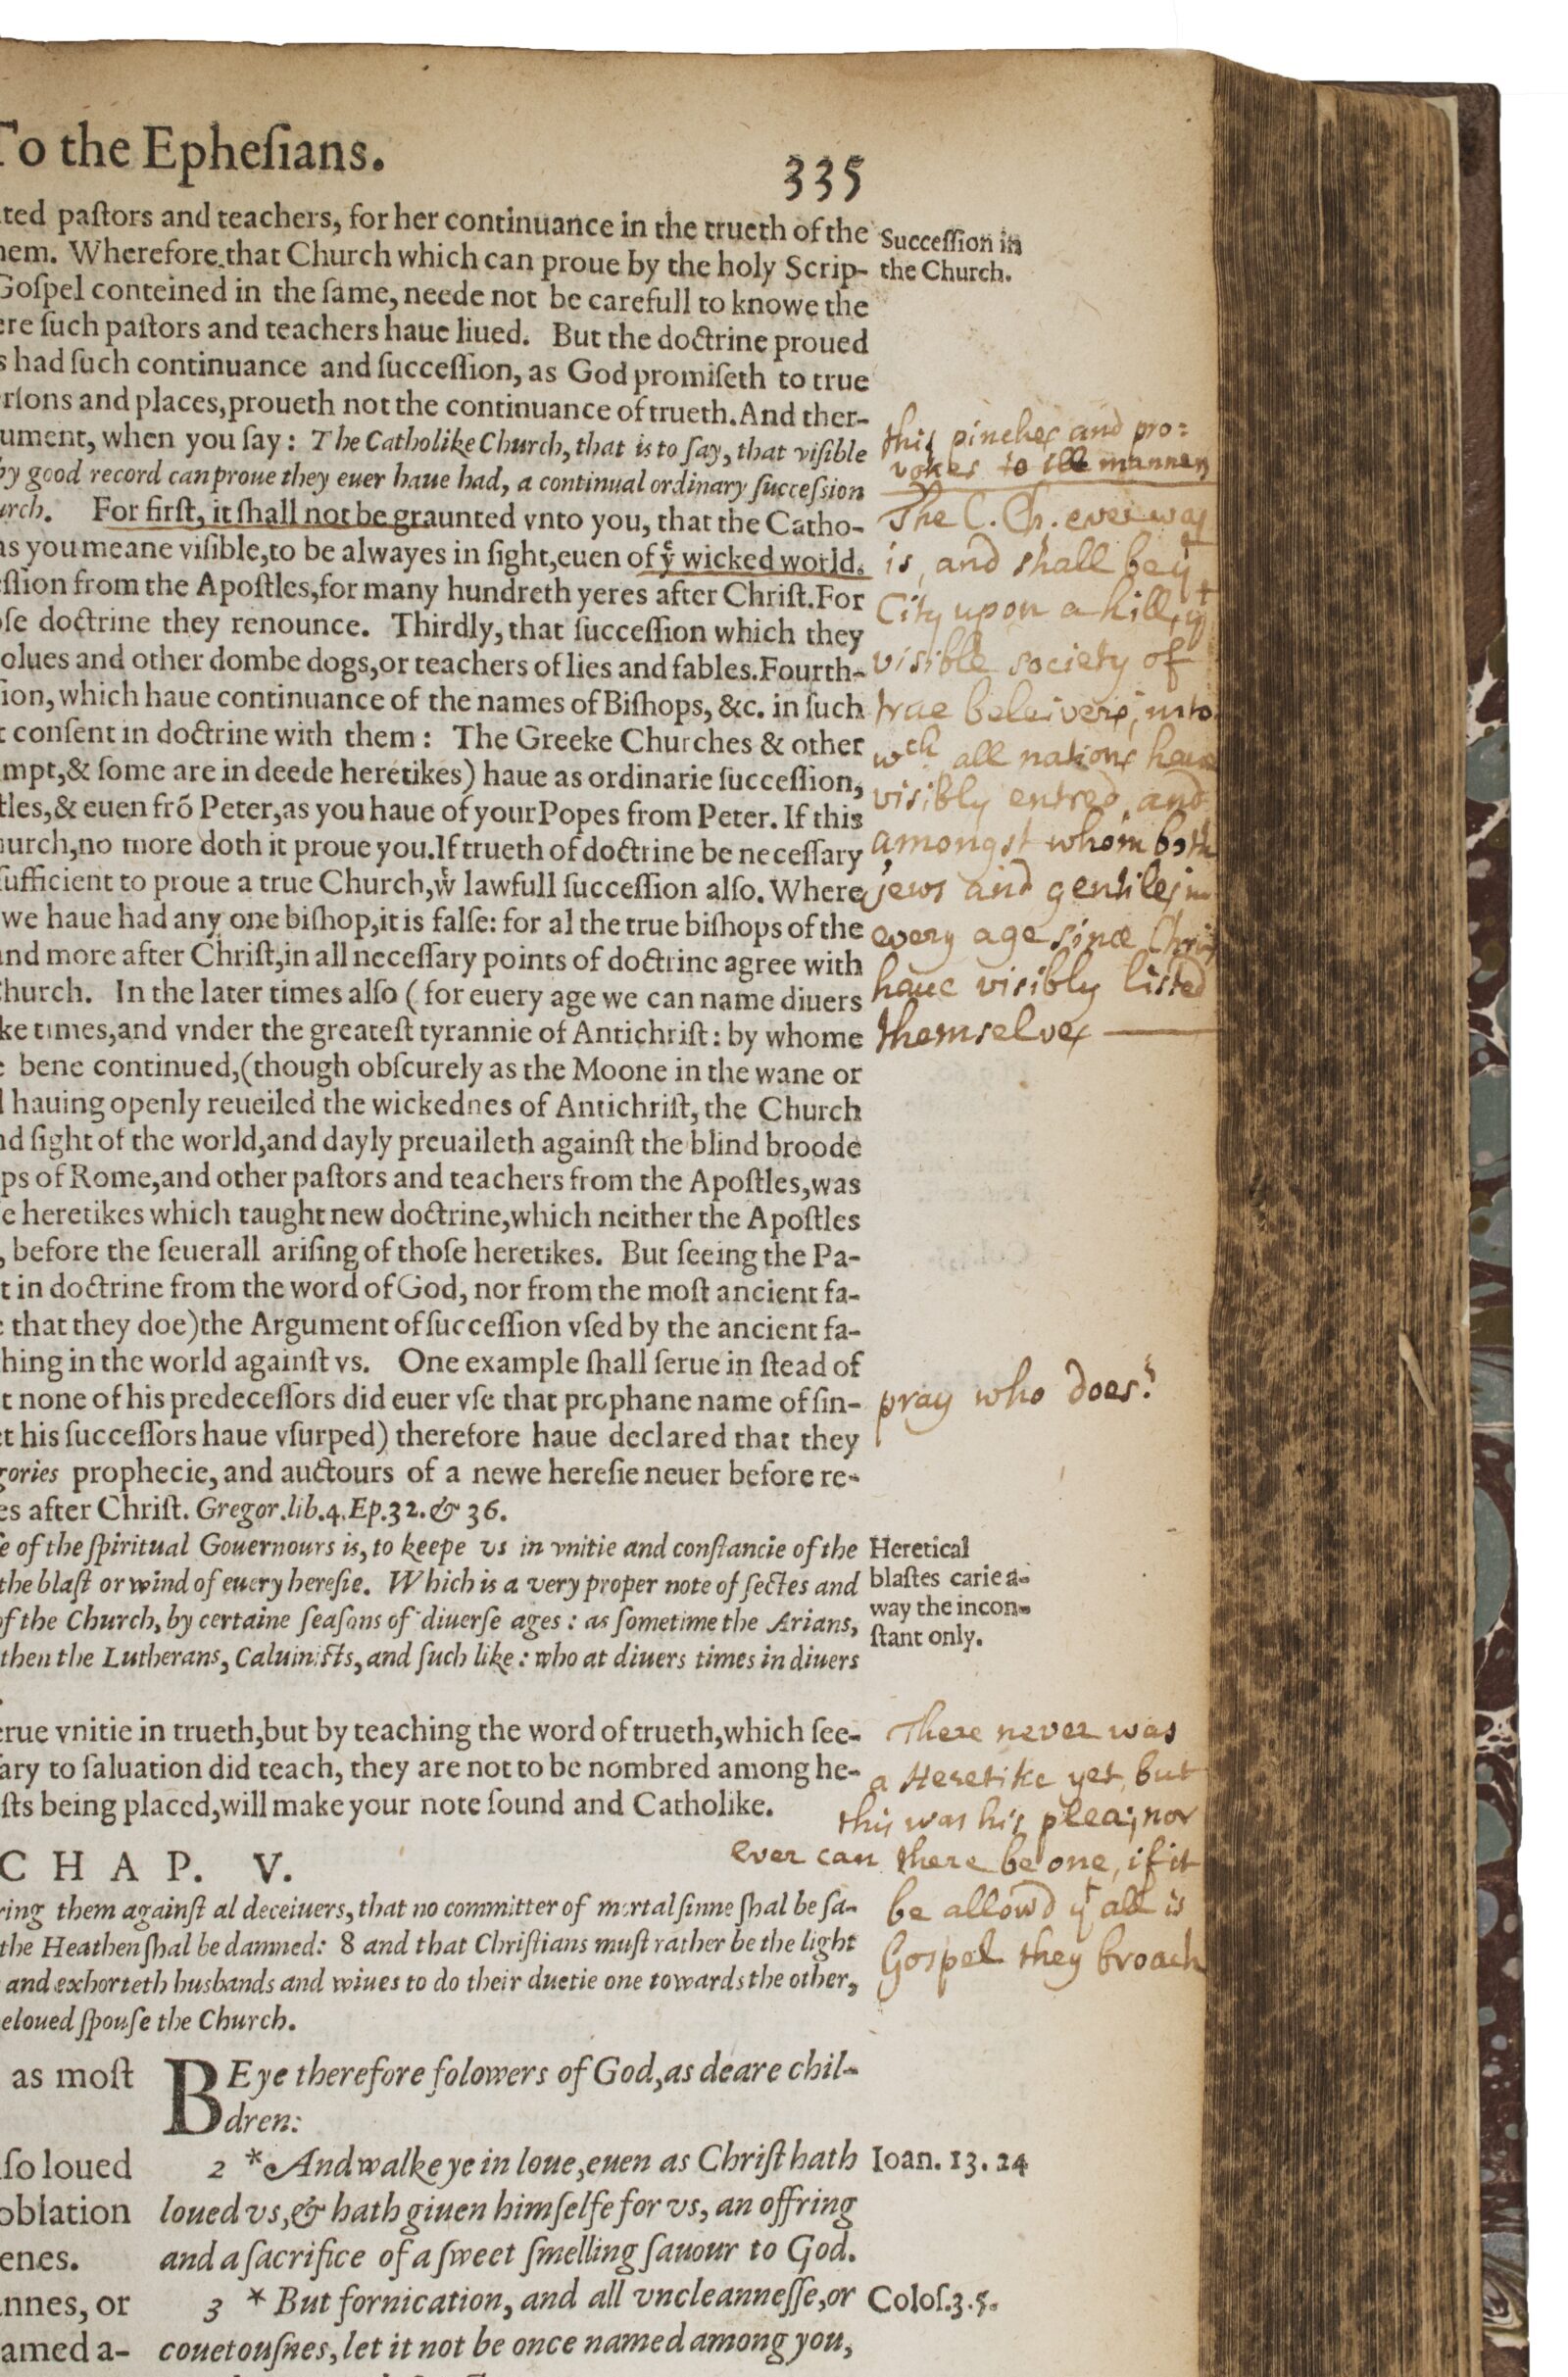 To the Epheſians.
335
ted paſtors and teachers, for her continuance in the trueth of the
hem. Wherefore that Church which can proue by the holy Scrip-
Goſpel conteined in the ſame, neede not be carefull to knowe the
ere ſuch paſtors and teachers haue liued. But the doctrine proued
s had ſuch continuance and ſucceſſion, as God promiſeth to true
rſons and places, proueth not the continuance of trueth. And ther-
ument, when you ſay: The Catholike Church, that is to ſay, that viſible
by good record can proue they euer haue had, a continual ordinary ſucceſsion
urch. For firſt, it ſhall not be graunted vnto you, that the Catho-
as you meane viſible, to be alwayes in ſight, euen of yͤ wicked world.
eſſion from the Apoſtles, for many hundreth yeres after Chriſt. For
oſe doctrine they renounce. Thirdly, that ſucceſſion which they
olues and other dombe dogs, or teachers of lies and fables. Fourth-
ſion, which haue continuance of the names of Biſhops, &c. in ſuch
t conſent in doctrine with them: The Greeke Churches & other
mpt, & ſome are in deede heretikes) haue as ordinarie ſucceſſion,
tles, & euen frō Peter, as you haue of your Popes from Peter. If this
hurch, no more doth it proue you. If trueth of doctrine be neceſſary
ſufficient to proue a true Church, wͭ lawfull ſucceſſion alſo. Where
we haue had any one biſhop, it is falſe: for al the true biſhops of the
and more after Chriſt, in all neceſſary points of doctrine agree with
Church. In the later times alſo (for euery age we can name diuers
ke times, and vnder the greateſt tyrannie of Antichriſt: by whome
e bene continued, (though obſcurely as the Moone in the wane or
d hauing openly reueiled the wickednes of Antichriſt, the Church
nd ſight of the world, and dayly preuaileth againſt the blind broode
ps of Rome, and other paſtors and teachers from the Apoſtles, was
e heretikes which taught new doctrine, which neither the Apoſtles
, before the ſeuerall ariſing of thoſe heretikes. But ſeeing the Pa-
t in doctrine from the word of God, nor from the moſt ancient fa-
e that they doe) the Argument of ſucceſſion vſed by the ancient fa-
hing in the world againſt vs. One example ſhall ſerue in ſtead of
t none of his predeceſſors did euer vſe that prophane name of ſin-
et his ſucceſſors haue vſurped) therefore haue declared that they
gories prophecie, and auctours of a newe hereſie neuer before re-
es after Chriſt. Gregor. lib. 4. Ep. 32. & 36.
e of the ſpiritual Gouernours is, to keepe vs in vnitie and conſtancie of the
the blaſt or wind of euery hereſie. Which is a very proper note of ſectes and
of the Church, by certaine ſeaſons of diuerſe ages: as ſometime the Arians,
then the Lutherans, Caluiniſts, and ſuch like: who at diuers times in diuers
.
erue vnitie in trueth, but by teaching the word of trueth, which ſee-
ſary to ſaluation did teach, they are not to be nombred among he-
ſts being placed, will make your note ſound and Catholike.
CHAP. V.
ring them againſt al deceiuers, that no committer of mortal ſinne ſhal be ſa-
the Heathen ſhal be damned: 8 and that Chriſtians muſt rather be the light
and exhorteth husbands and wiues to do their duetie one towards the other,
eloued ſpouſe the Church.
as moſt
ſo loued
oblation
enes.
nnes, or
amed a-
BE ye therefore folowers of God, as deare chil-
dren:
2 *And walke ye in loue, euen as Chriſt hath
loued vs, & hath giuen himſelfe for vs, an offring
and a ſacrifice of a ſweet ſmelling ſauour to God.
3 *But fornication, and all vncleanneſſe, or
couetouſnes, let it not be once named among you,
Succeſſion in
the Church.
this pinches and pro:
vokes to ill manners
The C. Ch. ever was
is, and shall be yͤ
City upon a hill, yͭ
visible society of
true beleivers; into
wch all nations have
visibly entred, and
amongst whom both
jews and gentiles in
every age since Christ
haue visibly listed
themselves
pray who does?
Heretical
blaſtes carie a-
way the incon-
ſtant only.
There never was
a Heretike yet, but
this was his plea; nor
ever can there be one, if it
be allow'd yͭ all is
Gospel they broach
Ioan. 13. 24
Coloſ. 3. 5.